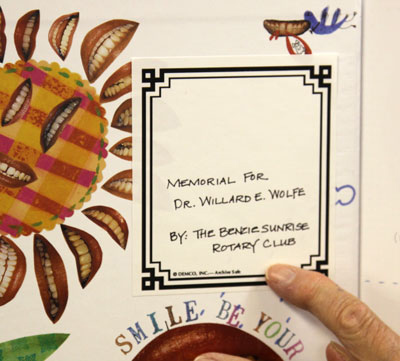 MEMORIAL FOR
DR. WILLARD E. WOLFE
BY: THE BENZIE SUNRISE
ROTARY CLUB
© DEMCO, INC.—Archive Safe
SMILE. BE. YOUR